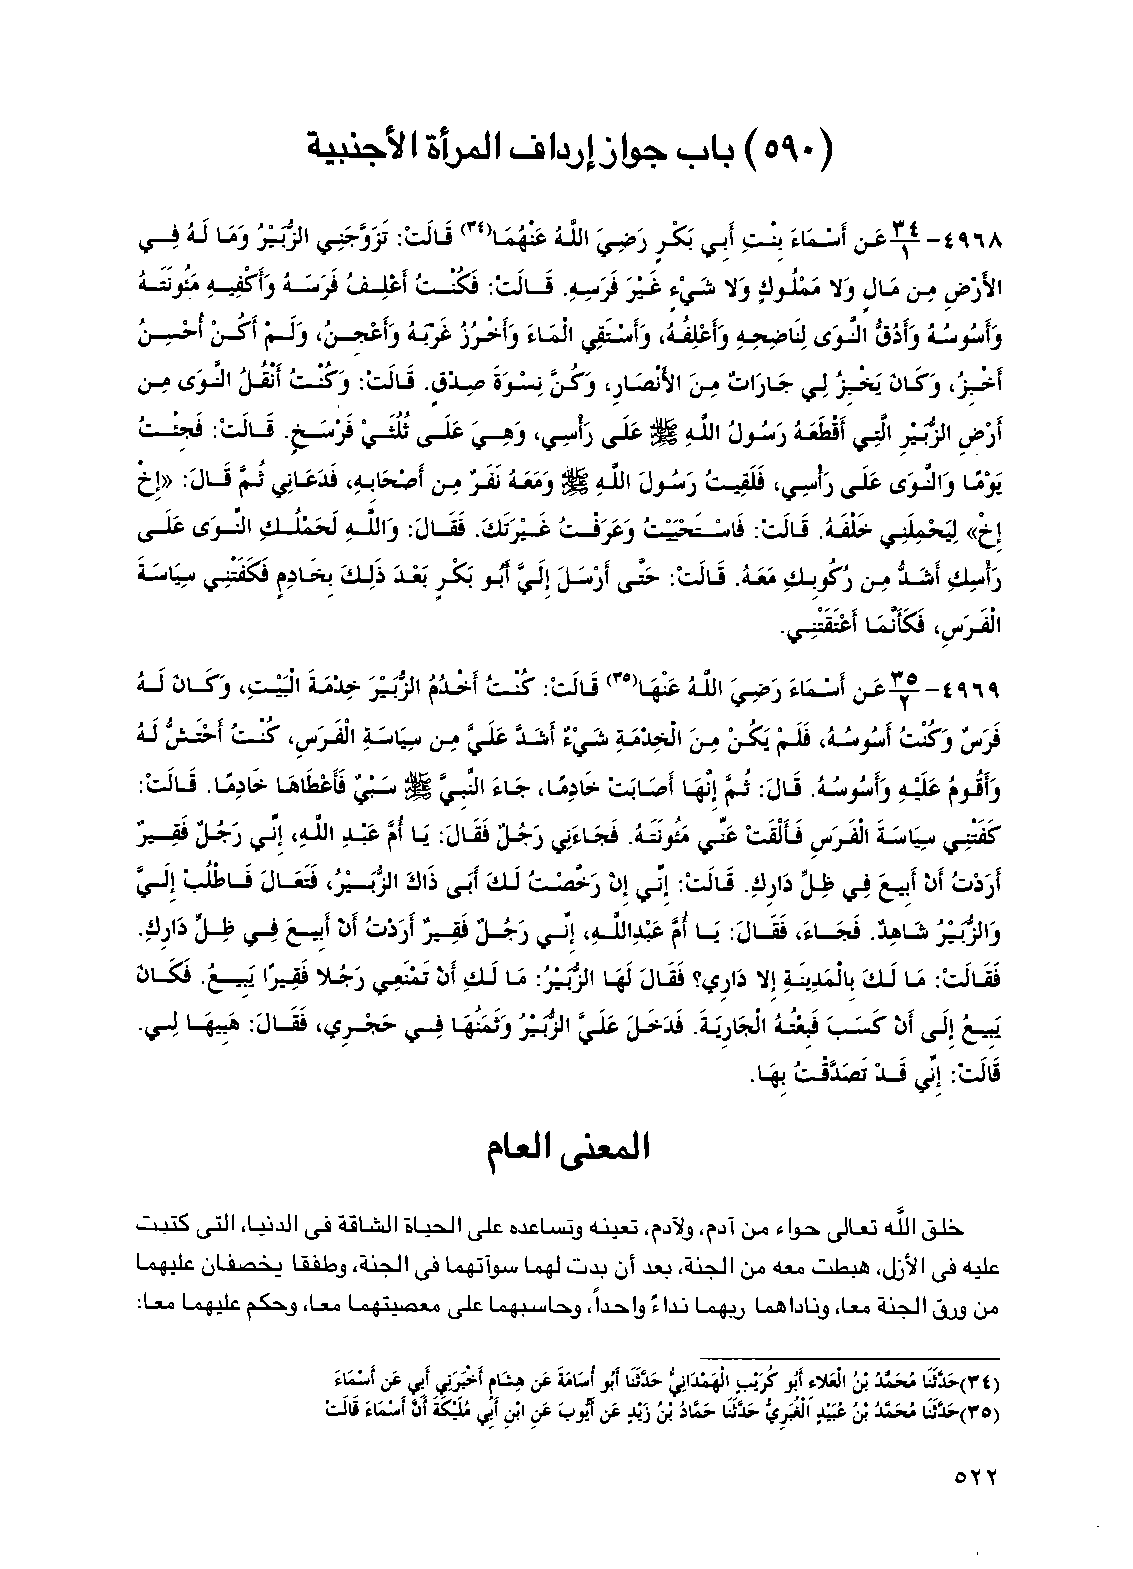 (٥٩٠) باب جواز إرداف المرأة الأجنبية
٤٩٦٨- ٣٤/١ عَن أَسْمَاءَ بِنْتِ أَبِي بَكْرٍ رَضِيَ اللَّهُ عَنْهُمَا(٣٤) قَالَتْ: تَزَوَّجَنِي الزُّبَيْرُ وَمَا لَهُ فِي
الأَرْضِ مِن مَالٍ وَلا مَمْلُوكٍ وَلا شَيْءٍ غَيْرَ فَرَسِهِ. قَالَتْ: فَكُنْتُ أَعْلِفُ فَرَسَهُ وَأَكْفِيهِ مَئُونَتَهُ
وَأَسُوسُهُ وَأَدُقُّ النَّوَى لِنَاضِحِهِ وَأَعْلِفُهُ، وَأَسْتَقِي الْمَاءَ وَأَخْرُزُ غَرْبَهُ وَأَعْجِنُ، وَلَمْ أَكُنْ أُحْسِنُ
أَخْبِزُ، وَكَانَ يَخْبِزُ لِي جَارَاتٌ مِنَ الأَنْصَارِ، وَكُنَّ نِسْوَةَ صِدْقٍ. قَالَتْ: وَكُنْتُ أَنْقُلُ النَّوَى مِن
أَرْضِ الزُّبَيْرِ الَّتِي أَقْطَعَهُ رَسُولُ اللَّهِ ﷺ عَلَى رَأْسِي، وَهِيَ عَلَى ثُلُثَيْ فَرْسَخٍ. قَالَتْ: فَجِئْتُ
يَوْمًا وَالنَّوَى عَلَى رَأْسِي، فَلَقِيتُ رَسُولَ اللَّهِ ﷺ وَمَعَهُ نَفَرٌ مِن أَصْحَابِهِ، فَدَعَانِي ثُمَّ قَالَ: «إِخْ
إِخْ» لِيَحْمِلَنِي خَلْفَهُ. قَالَتْ: فَاسْتَحْيَيْتُ وَعَرَفْتُ غَيْرَتَكَ. فَقَالَ: وَاللَّهِ لَحَمْلُكِ النَّوَى عَلَى
رَأْسِكِ أَشَدُّ مِن رُكُوبِكِ مَعَهُ. قَالَتْ: حَتَّى أَرْسَلَ إِلَيَّ أَبُو بَكْرٍ بَعْدَ ذَلِكَ بِخَادِمٍ فَكَفَتْنِي سِيَاسَةَ
الْفَرَسِ، فَكَأَنَّمَا أَعْتَقَتْنِي.
٤٩٦٩- ٣٥/٢ عَن أَسْمَاءَ رَضِيَ اللَّهُ عَنْهَا(٣٥) قَالَتْ: كُنْتُ أَخْدُمُ الزُّبَيْرَ خِدْمَةَ الْبَيْتِ، وَكَانَ لَهُ
فَرَسٌ وَكُنْتُ أَسُوسُهُ، فَلَمْ يَكُنْ مِنَ الْخِدْمَةِ شَيْءٌ أَشَدَّ عَلَيَّ مِن سِيَاسَةِ الْفَرَسِ، كُنْتُ أَحْتَشُّ لَهُ
وَأَقُومُ عَلَيْهِ وَأَسُوسُهُ. قَالَ: ثُمَّ إِنَّهَا أَصَابَتْ خَادِمًا، جَاءَ النَّبِيَّ ﷺ سَبْيٌ فَأَعْطَاهَا خَادِمًا. قَالَتْ:
كَفَتْنِي سِيَاسَةَ الْفَرَسِ فَأَلْقَتْ عَنِّي مَئُونَتَهُ. فَجَاءَنِي رَجُلٌ فَقَالَ: يَا أُمَّ عَبْدِ اللَّهِ، إِنِّي رَجُلٌ فَقِيرٌ
أَرَدْتُ أَنْ أَبِيعَ فِي ظِلِّ دَارِكِ. قَالَتْ: إِنِّي إِنْ رَخَّصْتُ لَكَ أَبَى ذَاكَ الزُّبَيْرُ، فَتَعَالَ فَاطْلُبْ إِلَيَّ
وَالزُّبَيْرُ شَاهِدٌ. فَجَاءَ، فَقَالَ: يَا أُمَّ عَبْدِاللَّهِ، إِنِّي رَجُلٌ فَقِيرٌ أَرَدْتُ أَنْ أَبِيعَ فِي ظِلِّ دَارِكِ.
فَقَالَتْ: مَا لَكَ بِالْمَدِينَةِ إِلا دَارِي؟ فَقَالَ لَهَا الزُّبَيْرُ: مَا لَكِ أَنْ تَمْنَعِي رَجُلا فَقِيرًا يَبِيعُ. فَكَانَ
يَبِيعُ إِلَى أَنْ كَسَبَ فَبِعْتُهُ الْجَارِيَةَ. فَدَخَلَ عَلَيَّ الزُّبَيْرُ وَثَمَنُهَا فِي حَجْرِي، فَقَالَ: هَبِيهَا لِي.
قَالَتْ: إِنِّي قَدْ تَصَدَّقْتُ بِهَا.
المعنى العام
خلق اللَّه تعالى حواء من آدم، ولآدم، تعينه وتساعده على الحياة الشاقة فى الدنيا، التى كتبت
عليه فى الأزل، هبطت معه من الجنة، بعد أن بدت لهما سوآتهما فى الجنة، وطفقا يخصفان عليهما
من ورق الجنة معا، وناداهما ربهما نداءً واحداً، وحاسبهما على معصيتهما معا، وحكم عليهما معا:
(٣٤)حَدَّثَنَا مُحَمَّدُ بْنُ الْعَلاءِ أَبُو كُرَيْبٍ الْهَمْدَانِيُّ حَدَّثَنَا أَبُو أُسَامَةَ عَن هِشَامٍ أَخْبَرَنِي أَبِي عَن أَسْمَاءَ
(٣٥)حَدَّثَنَا مُحَمَّدُ بْنُ عُبَيْدٍ الْغُبَرِيُّ حَدَّثَنَا حَمَّادُ بْنُ زَيْدٍ عَن أَيُّوبَ عَنِ ابْنِ أَبِي مُلَيْكَةَ أَنَّ أَسْمَاءَ قَالَتْ
٥٢٢